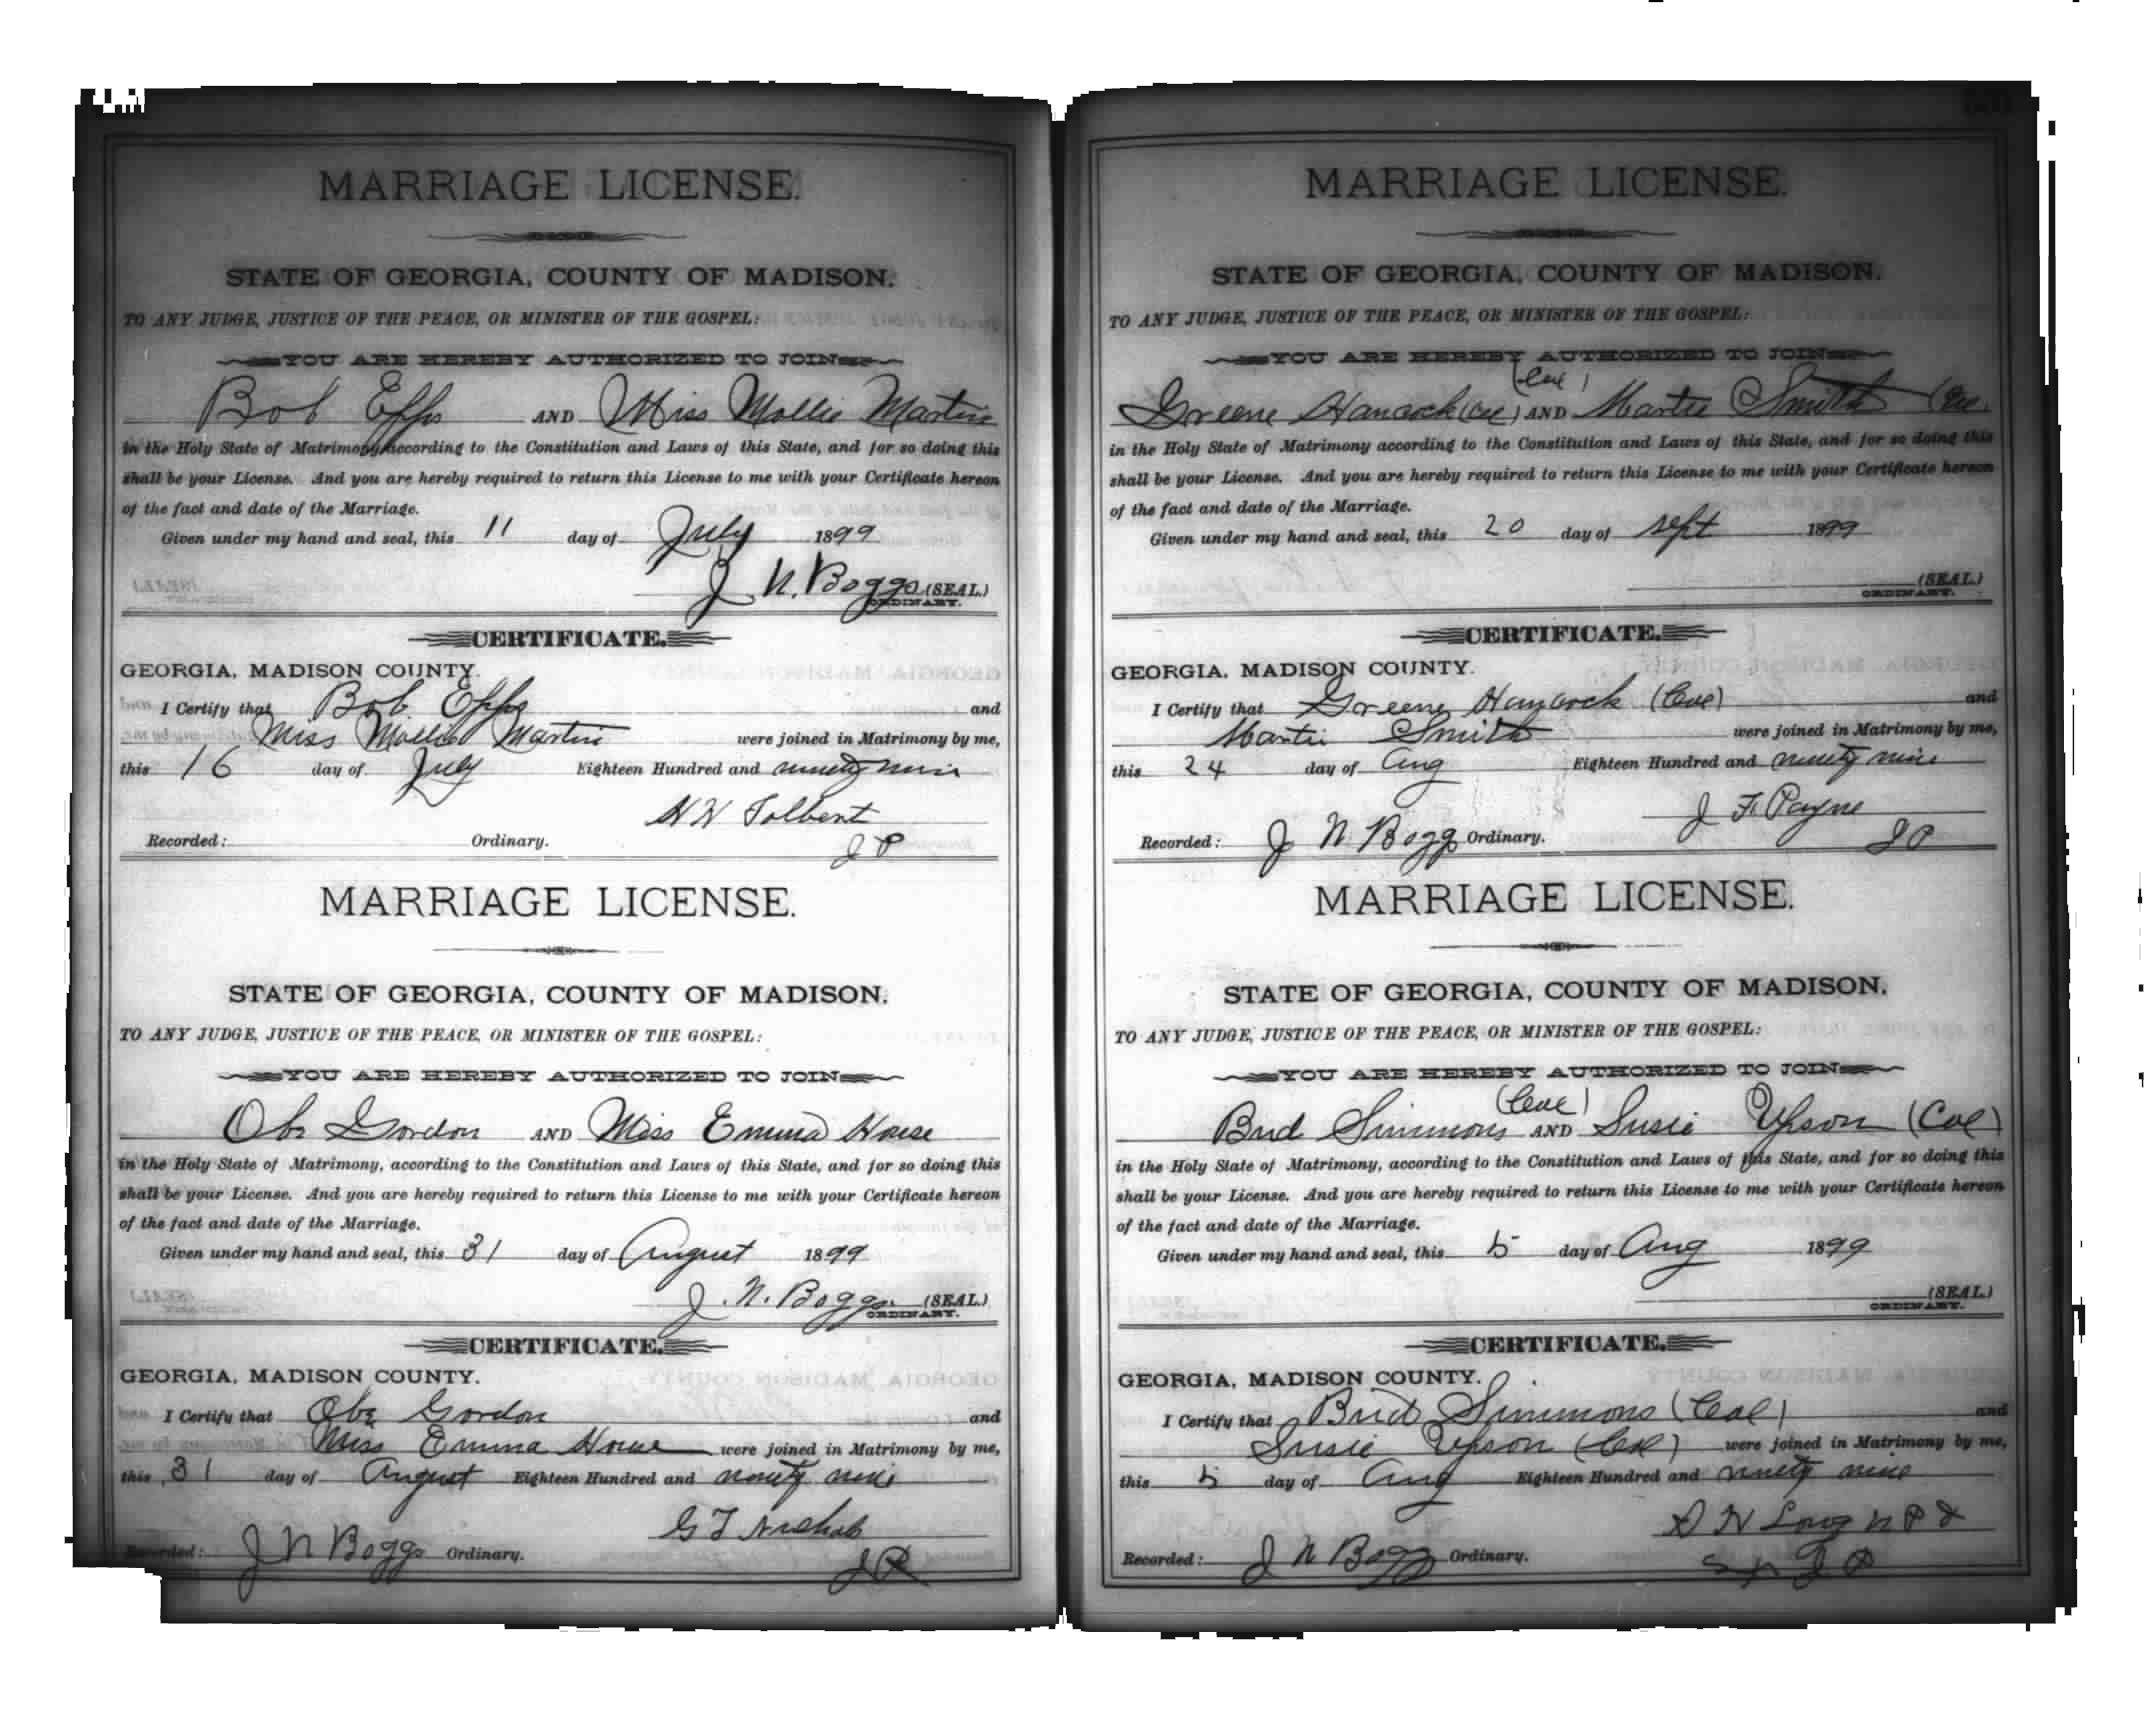 MARRIAGE LICENSE.
STATE OF GEORGIA, COUNTY OF MADISON.
TO ANY JUDGE, JUSTICE OF THE PEACE, OR MINISTER OF THE GOSPEL:
YOU ARE HEREBY AUTHORIZED TO JOIN
Bob Epps AND Miss Mollie Martin
in the Holy State of Matrimony according to the Constitution and Laws of this State, and for so doing this
shall be your License. And you are hereby required to return this License to me with your Certificate hereon
of the fact and date of the Marriage.
Given under my hand and seal, this 11 day of July 1899
J. N. Boggs (SEAL.)
ORDINARY.
CERTIFICATE.
GEORGIA, MADISON COUNTY.
I Certify that Bob Epps and
Miss Mollie Martin were joined in Matrimony by me,
this 16 day of July Eighteen Hundred and ninety nine
H W Tolbert
Recorded: Ordinary. J P
MARRIAGE LICENSE.
STATE OF GEORGIA, COUNTY OF MADISON.
TO ANY JUDGE, JUSTICE OF THE PEACE, OR MINISTER OF THE GOSPEL:
YOU ARE HEREBY AUTHORIZED TO JOIN
Obe Gordon AND Miss Emma House
in the Holy State of Matrimony, according to the Constitution and Laws of this State, and for so doing this
shall be your License. And you are hereby required to return this License to me with your Certificate hereon
of the fact and date of the Marriage.
Given under my hand and seal, this 31 day of August 1899
J. N. Boggs (SEAL.)
ORDINARY.
CERTIFICATE.
GEORGIA, MADISON COUNTY.
I Certify that Obe Gordon and
Miss Emma House were joined in Matrimony by me,
this 31 day of August Eighteen Hundred and ninety nine
G T
Recorded: J N Boggs Ordinary. J P
MARRIAGE LICENSE.
STATE OF GEORGIA, COUNTY OF MADISON.
TO ANY JUDGE, JUSTICE OF THE PEACE, OR MINISTER OF THE GOSPEL:
YOU ARE HEREBY AUTHORIZED TO JOIN
(Col)
Greene Hancock (Col) AND Martie Smith (Col)
in the Holy State of Matrimony according to the Constitution and Laws of this State, and for so doing this
shall be your License. And you are hereby required to return this License to me with your Certificate hereon
of the fact and date of the Marriage.
Given under my hand and seal, this 20 day of sept 1899
(SEAL.)
ORDINARY.
CERTIFICATE.
GEORGIA, MADISON COUNTY.
I Certify that Greene Hancock (Col) and
Martie Smith were joined in Matrimony by me,
this 24 day of Aug Eighteen Hundred and ninety nine
J. F. Payne
Recorded: J N Boggs Ordinary. J P
MARRIAGE LICENSE.
STATE OF GEORGIA, COUNTY OF MADISON.
TO ANY JUDGE, JUSTICE OF THE PEACE, OR MINISTER OF THE GOSPEL:
YOU ARE HEREBY AUTHORIZED TO JOIN
(Col)
Bud Simmons AND Susie Upson (Col)
in the Holy State of Matrimony, according to the Constitution and Laws of this State, and for so doing this
shall be your License. And you are hereby required to return this License to me with your Certificate hereon
of the fact and date of the Marriage.
Given under my hand and seal, this 5 day of Aug 1899
(SEAL.)
ORDINARY.
CERTIFICATE.
GEORGIA, MADISON COUNTY.
I Certify that Bud Simmons (Col) and
Susie Upson (Col) were joined in Matrimony by me,
this 5 day of Aug Eighteen Hundred and ninety nine
Long N P &
Recorded: J N Boggs Ordinary. J P